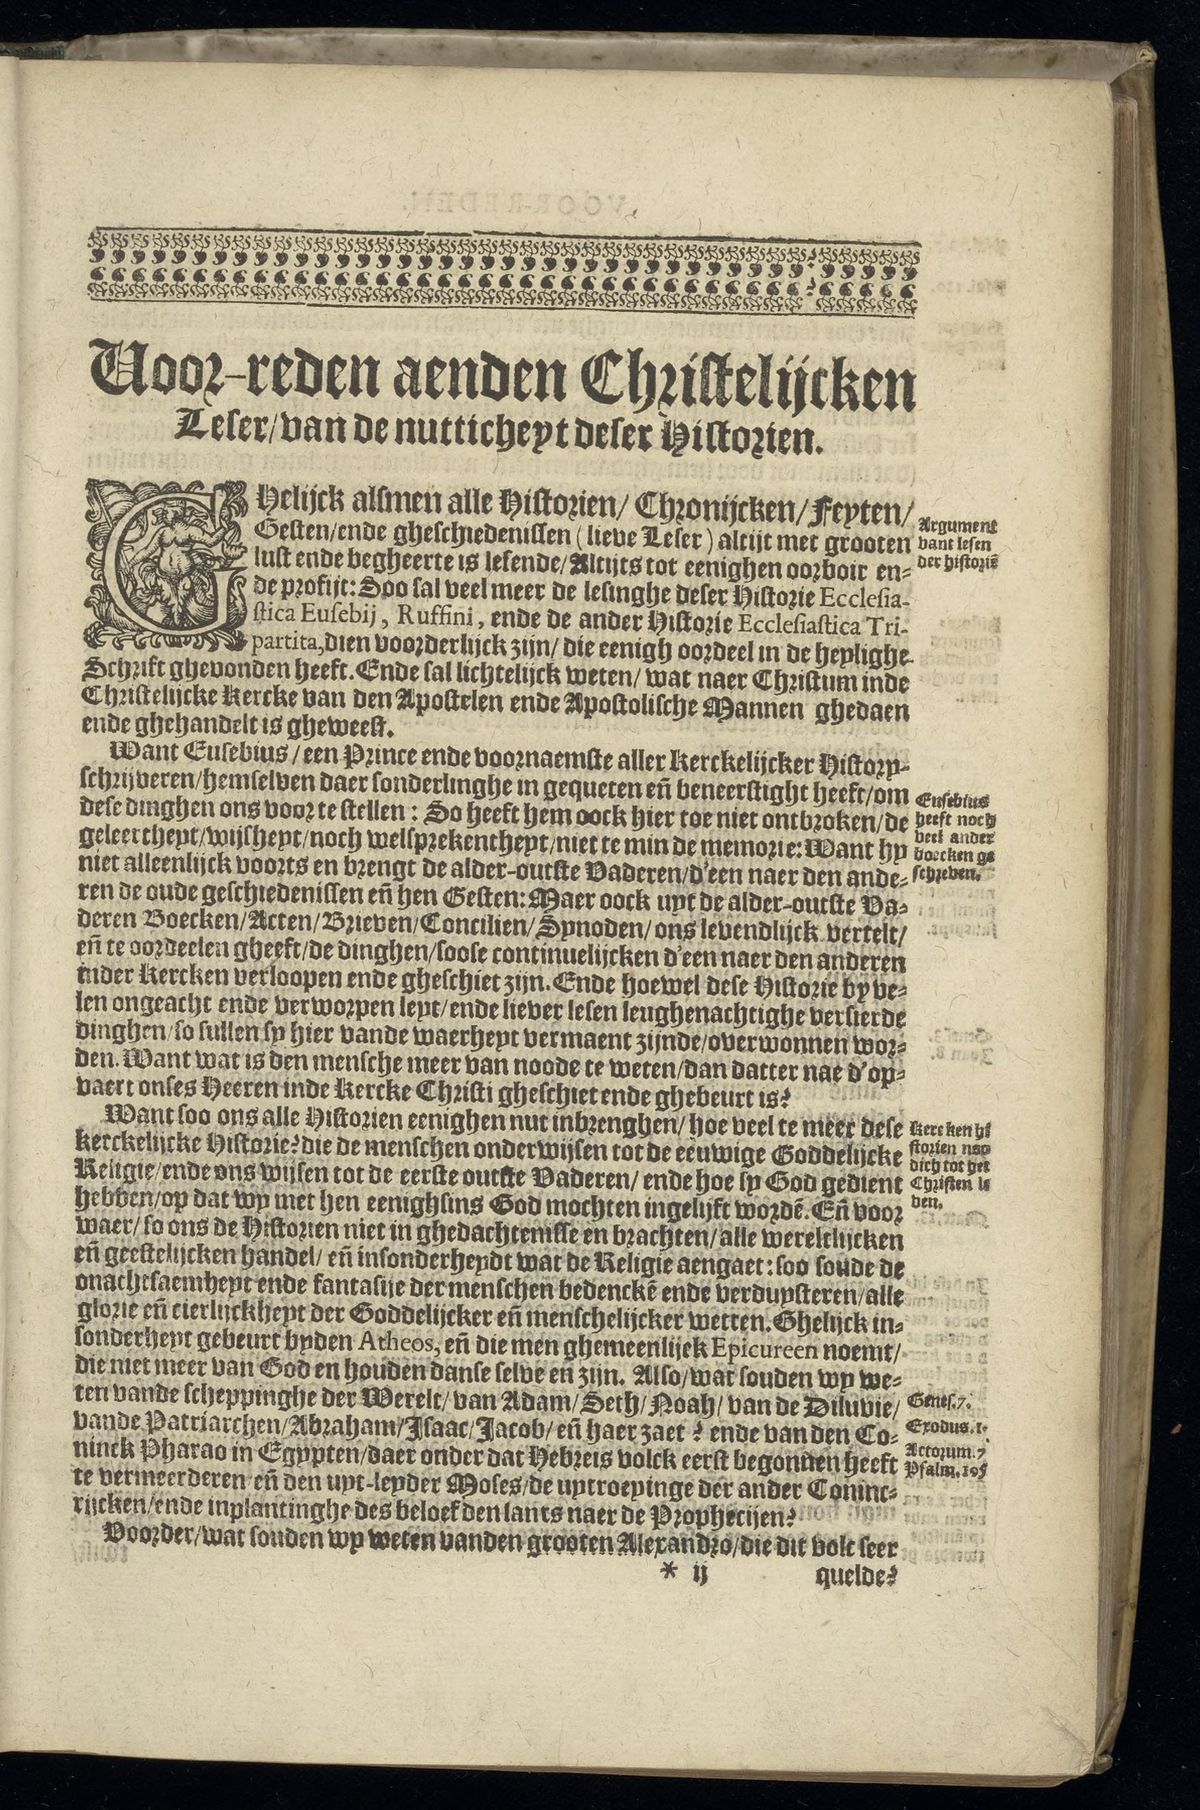 Voor-reden aenden Christelijcken
Leser/van de nutticheyt deser Historien.
GHelijck alsmen alle Historien/ Chronijcken/ Feyten/
Gesten/ende gheschiedenissen (lieve Leser) altijt met grooten
lust ende begheerte is lesende/Altijts tot eenighen oorboir en-
de profijt: Soo sal veel meer de lesinghe deser Historie Ecclesia-
stica Eusebij, Ruffini, ende de ander Historie Ecclesiastica Tri-
partita, dien voorderlijck zijn/ die eenigh oordeel in de heylighe
Schrift ghevonden heeft. Ende sal lichtelijck weten/ wat naer Christum inde
Christelijcke Kercke van den Apostelen ende Apostolische Mannen ghedaen
ende ghehandelt is gheweest.
Argument
vant lesen
der historiẽ
Want Eusebius/een Prince ende voornaemste aller Kerckelijcker History-
schrijveren/hemselven daer sonderlinghe in gequeten eñ beneerstight heeft/om
dese dinghen ons voor te stellen: So heeft hem oock hier toe niet ontbroken/de
geleertheyt/wijsheyt/noch welsprekentheyt/niet te min de memorie: Want hy
niet alleenlijck voorts en brengt de alder-outste Vaderen/d'een naer den ande-
ren de oude geschiedenissen eñ hen Gesten: Maer oock uyt de alder-outste Va-
deren Boecken/Acten/Brieven/Concilien/Synoden/ons levendlijck vertelt/
eñ te oordeelen gheeft/de dinghen/soose continuelijcken d'een naer den anderen
inder Kercken verloopen ende gheschiet zijn. Ende hoewel dese Historie by ve-
len ongeacht ende verworpen leyt/ende liever lesen leughenachtighe versierde
dinghen/so sullen sy hier vande waerheyt vermaent zijnde/overwonnen wor-
den. Want wat is den mensche meer van noode te weten/dan datter nae d'op-
vaert onses Heeren inde Kercke Christi gheschiet ende ghebeurt is?
Eusebius
heeft noch
veel ander
boecken ge
schreven.
Want soo ons alle Historien eenighen nut inbrenghen/ hoe veel te meer dese
kerckelijcke Historie? die de menschen onderwijsen tot de eeuwige Goddelijcke
Religie/ende ons wijsen tot de eerste outste Vaderen/ ende hoe sy God gedient
hebben/op dat wy met hen eenighsins God mochten ingelijft wordẽ. Eñ voor
waer/so ons de Historien niet in ghedachtenisse en brachten/alle wereltlijcken
eñ geestelijcken handel/ eñ insonderheydt wat de Religie aengaet: soo soude de
onachtsaemheyt ende fantasije der menschen bedenckẽ ende verduysteren/alle
glorie eñ cierlijckheyt der Goddelijcker eñ menschelijcker wetten. Ghelijck in-
sonderheyt gebeurt byden Atheos, eñ die men ghemeenlijck Epicureen noemt/
die niet meer van God en houden danse selve en zijn. Also/wat souden wy we-
ten vande scheppinghe der Werelt/van Adam/Seth/Noah/van de Diluvie/
vande Patriarchen/Abraham/Isaac/Jacob/eñ haer zaet? ende van den Co-
ninck Pharao in Egypten/daer onder dat Hebreis volck eerst begonnen heeft
te vermeerderen eñ den uyt-leyder Moses/de uytroeyinge der ander Coninc-
rijcken/ende inplantinghe des beloefden lants naer de Prophecijen?
Kercken hi
storien noo
dich tot het
Christen le
ven.
Genes.7.
Exodus.1.
Actorum.7
Psalm.105
Voorder/wat souden wy weten vanden grooten Alexandro/die dit volc seer
* ij
quelde?